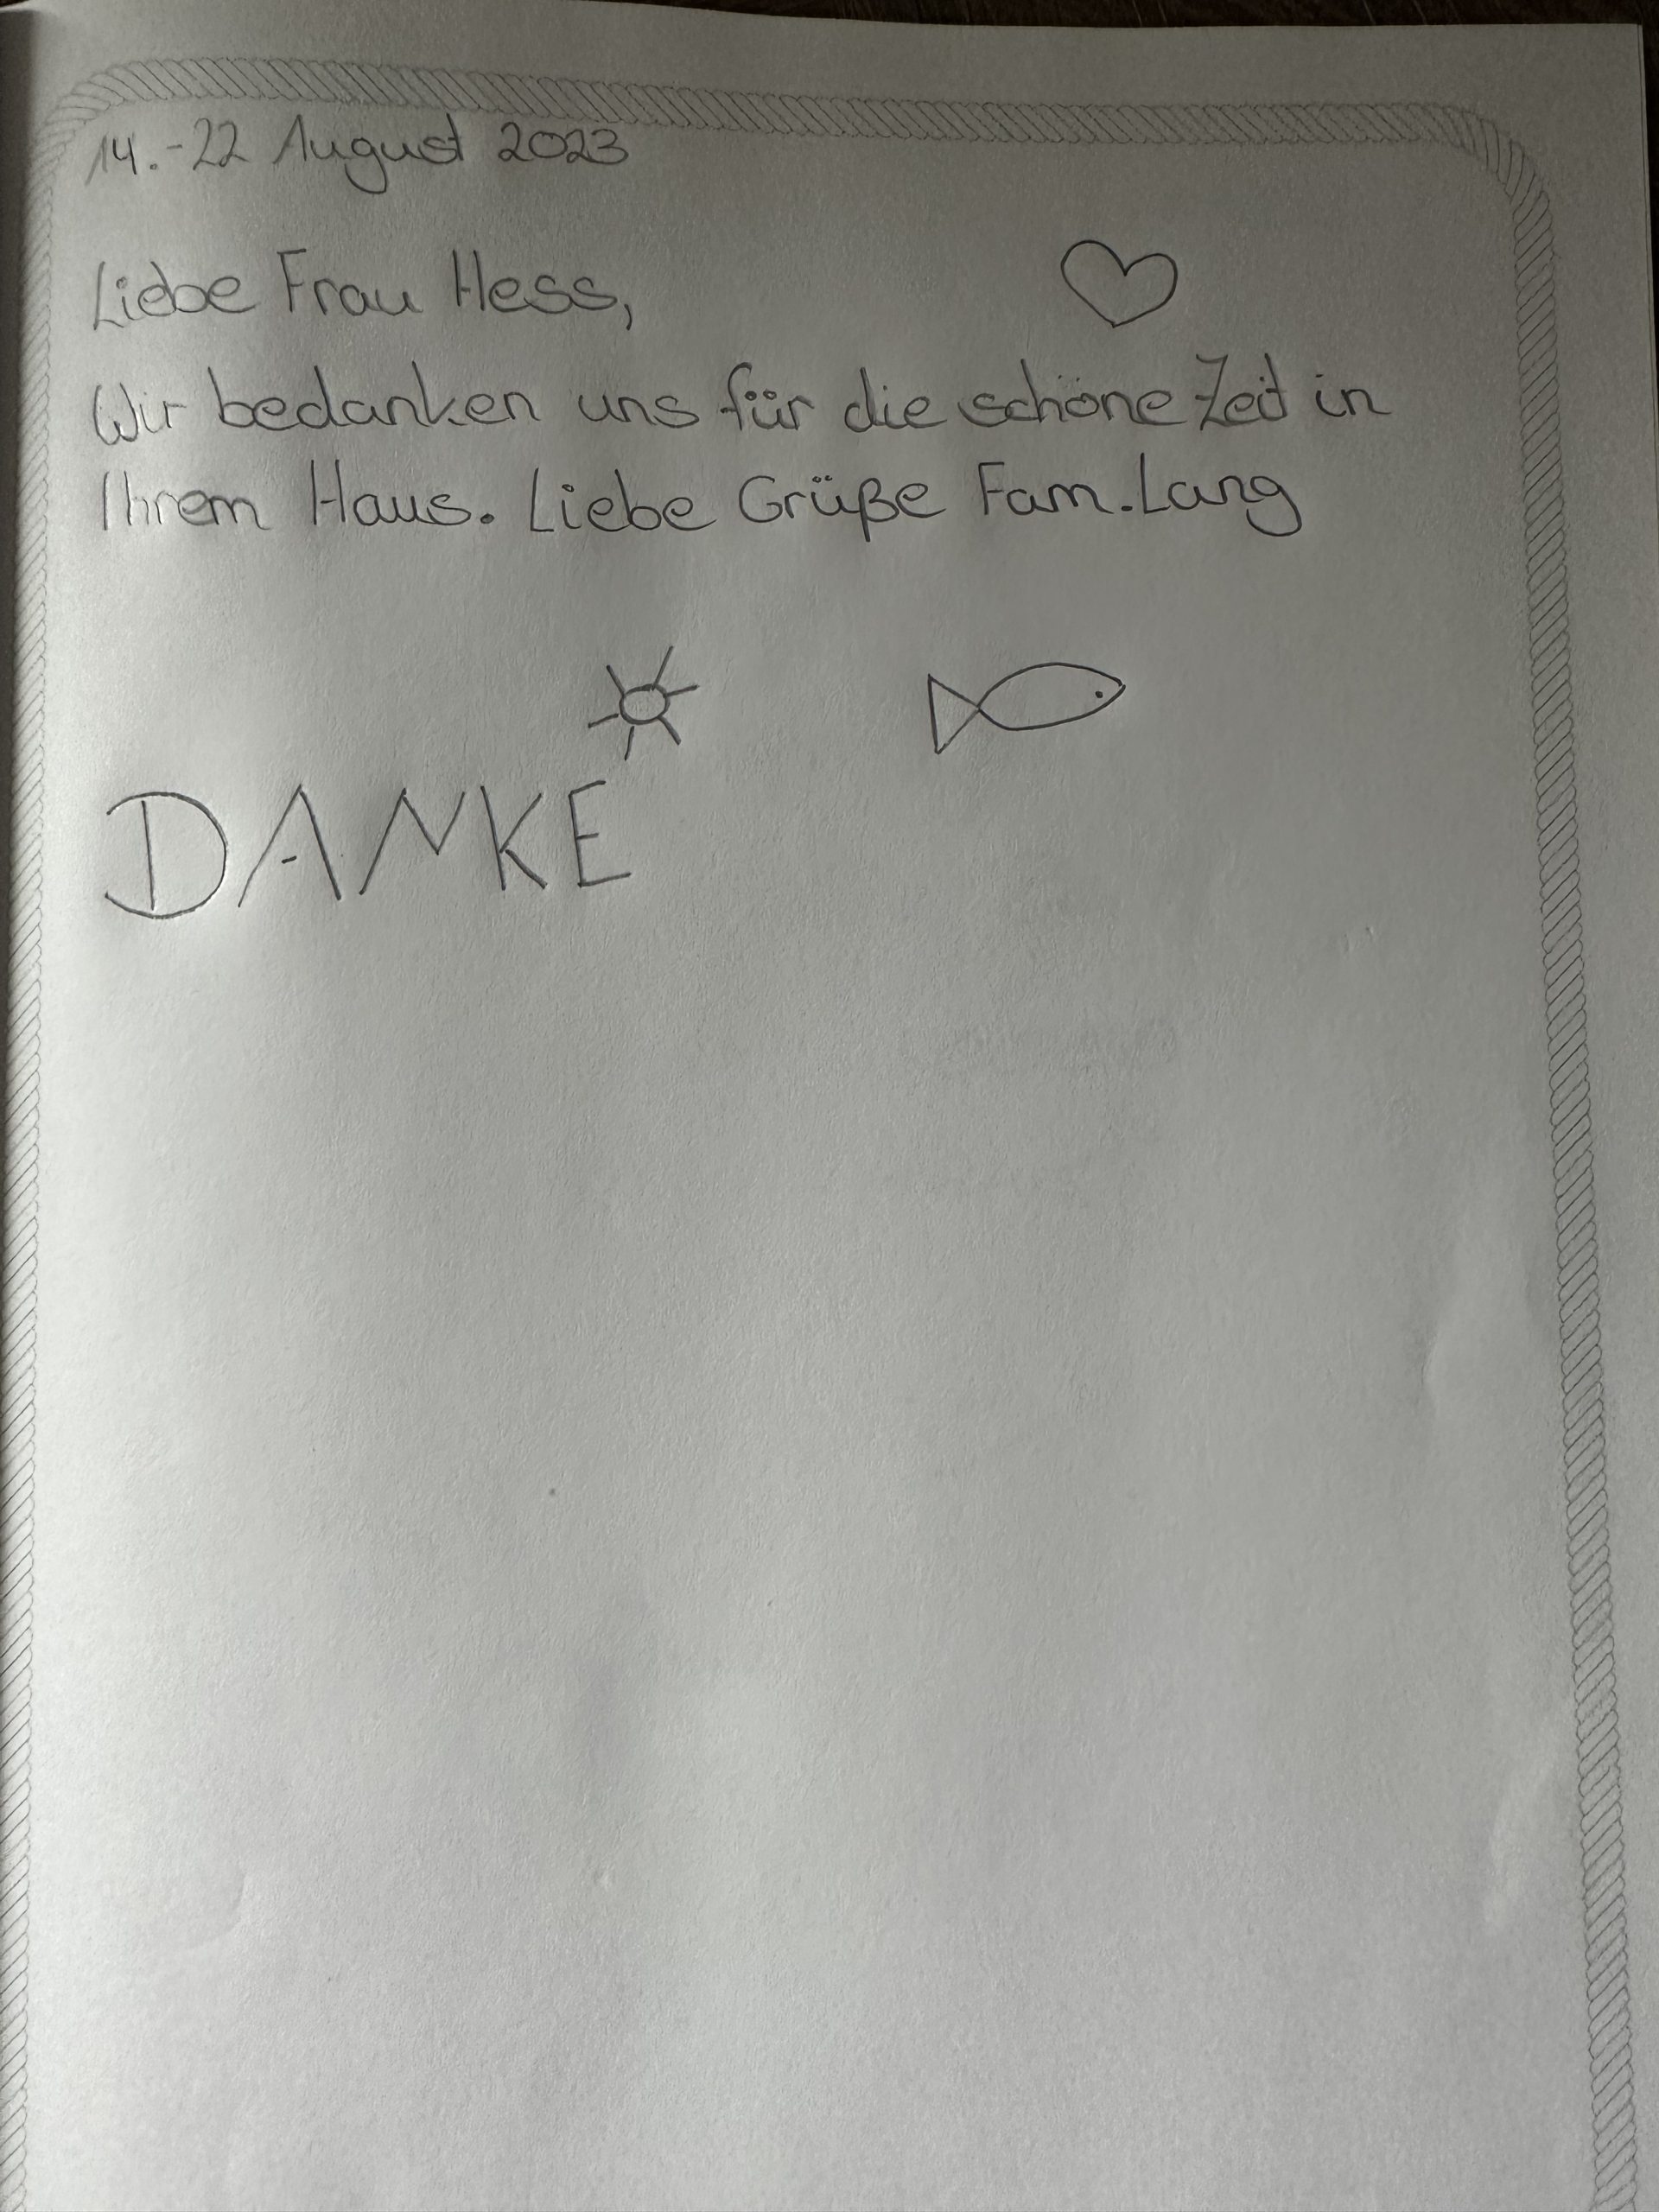 14.-22 August 2023
Liebe Frau Hess,
Wir bedanken uns für die schöne Zeit in
Ihrem Haus. Liebe Grüße Fam. Lang
DANKE